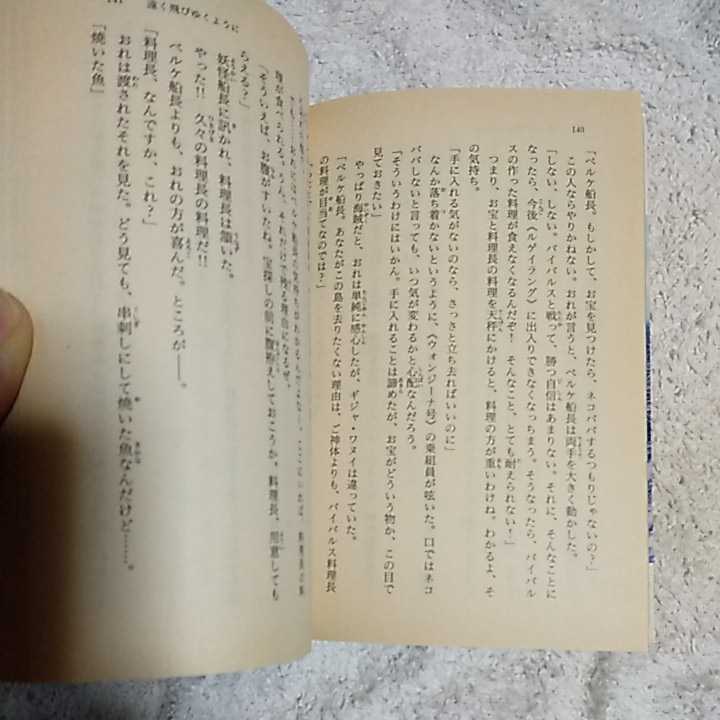 140
「ベルケ船長。もしかして、お宝を見つけたら、ネコババするつもりじゃないの?」
この人ならやりかねない。おれが言うと、ベルケ船長は両手を大きく動かした。
「しない、しない。バイパルスと戦って、勝つ自信はあまりない。それに、そんなことに
なったら、今後《ルゲイラング》に出入りできなくなっちまう。そうなったら、バイパル
スの作った料理が食えなくなるんだぞ! そんなこと、とても耐えられない!」
つまり、お宝と料理長の料理を天秤にかけると、料理の方が重いわけね。わかるよ、そ
の気持ち。
「手に入れる気がないのなら、さっさと立ち去ればいいのに」
なんか落ち着かないというように、《ウォンジーナ号》の乗組員が呟いた。口ではネコ
ババしないと言っても、いつ気が変わるかと心配なんだろう。
「そういうわけにはいかん。手に入れることは諦めたが、お宝がどういう物か、この目で
見ておきたい」
やっぱり海賊だと、おれは単純に感心したが、ギジャ・ワヌイは違っていた。
「ベルケ船長。あなたがこの島を去りたくない理由は、ご神体よりも、バイパルス料理長
の料理が目当てなのでは?」
141 遠く飛びゆくように
理が食べられる。うん、それだけで残る理由になるぜ。
「そういえば、お腹がすいたね。宝探しの前に腹拵えしておこうか。料理長、用意しても
らえる?」
妖怪船長に訊かれ、料理長は頷いた。
やった!! 久々の料理長の料理だ!!
ベルケ船長よりも、おれの方が喜んだ。ところが——。
「料理長、なんですか、これ?」
おれは渡されたそれを見た。どう見ても、串刺しにして焼いた魚なんだけど……。
「焼いた魚」